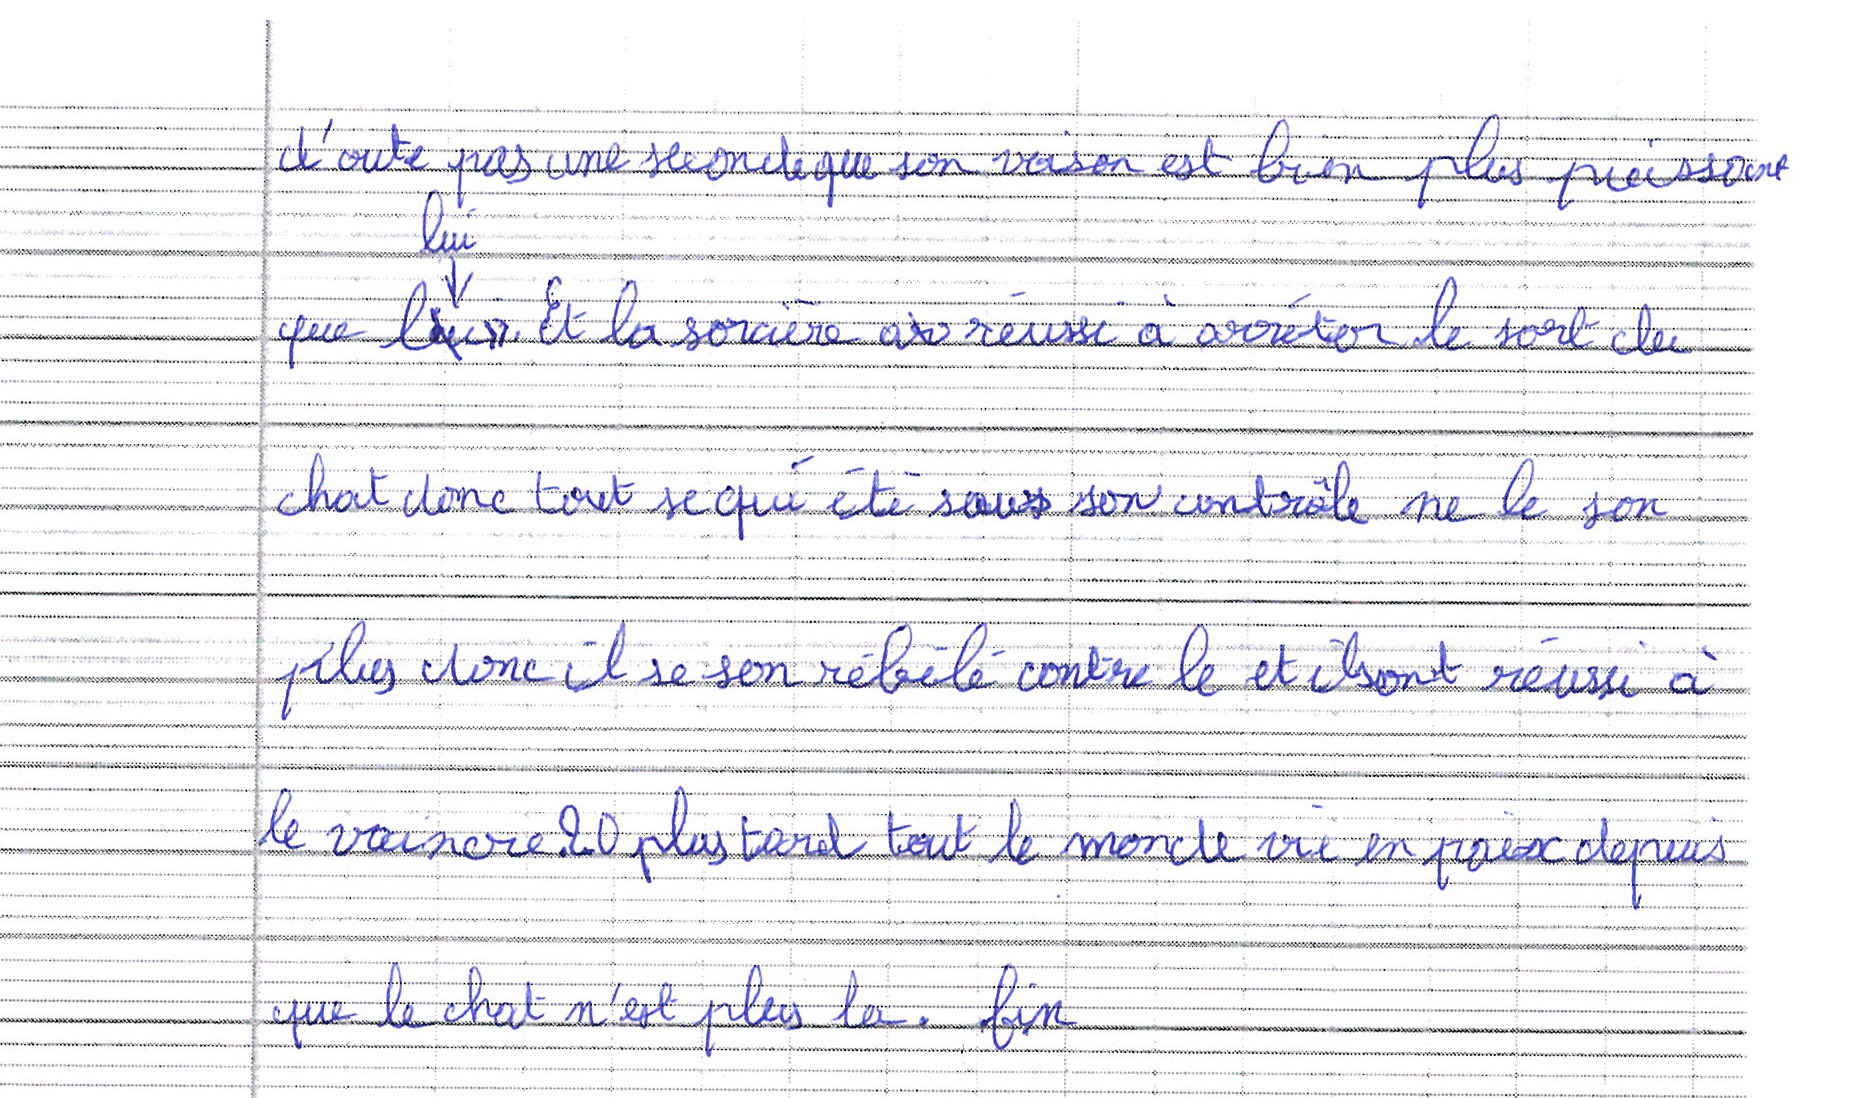 d'oute pas une seconde que son voison est bien plus puissant
lui
que lui. Et la sorcière a réussi à arréter le sort du
chat donc tout se qui été sous son contrôle ne le son
plus donc il se son rébélé contre le et ilsont réussi à
le vaincre 20 plus tard tout le monde vie en paix depuis
que le chat n'est plus la. fin